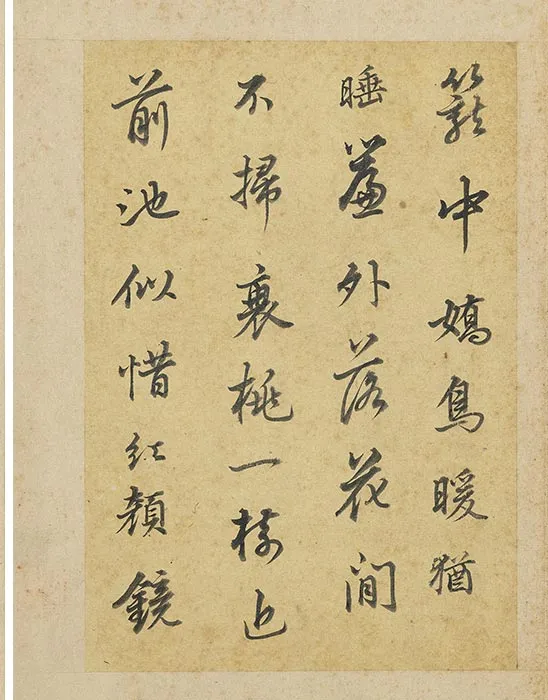 籠中嬌鳥暖猶
睡簾外落花閒
不掃衰桃一樹近
前池似惜紅顏鏡